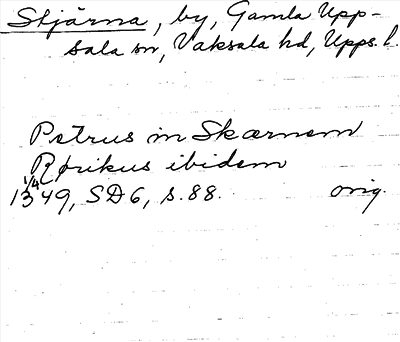 Stjärna, by, Gamla Upp-
sala sn, Vaksala hd, Upps. l.
Petrus in Skærnem
Rørikus ibidem
1/4
1349, SD6, s. 88. orig.